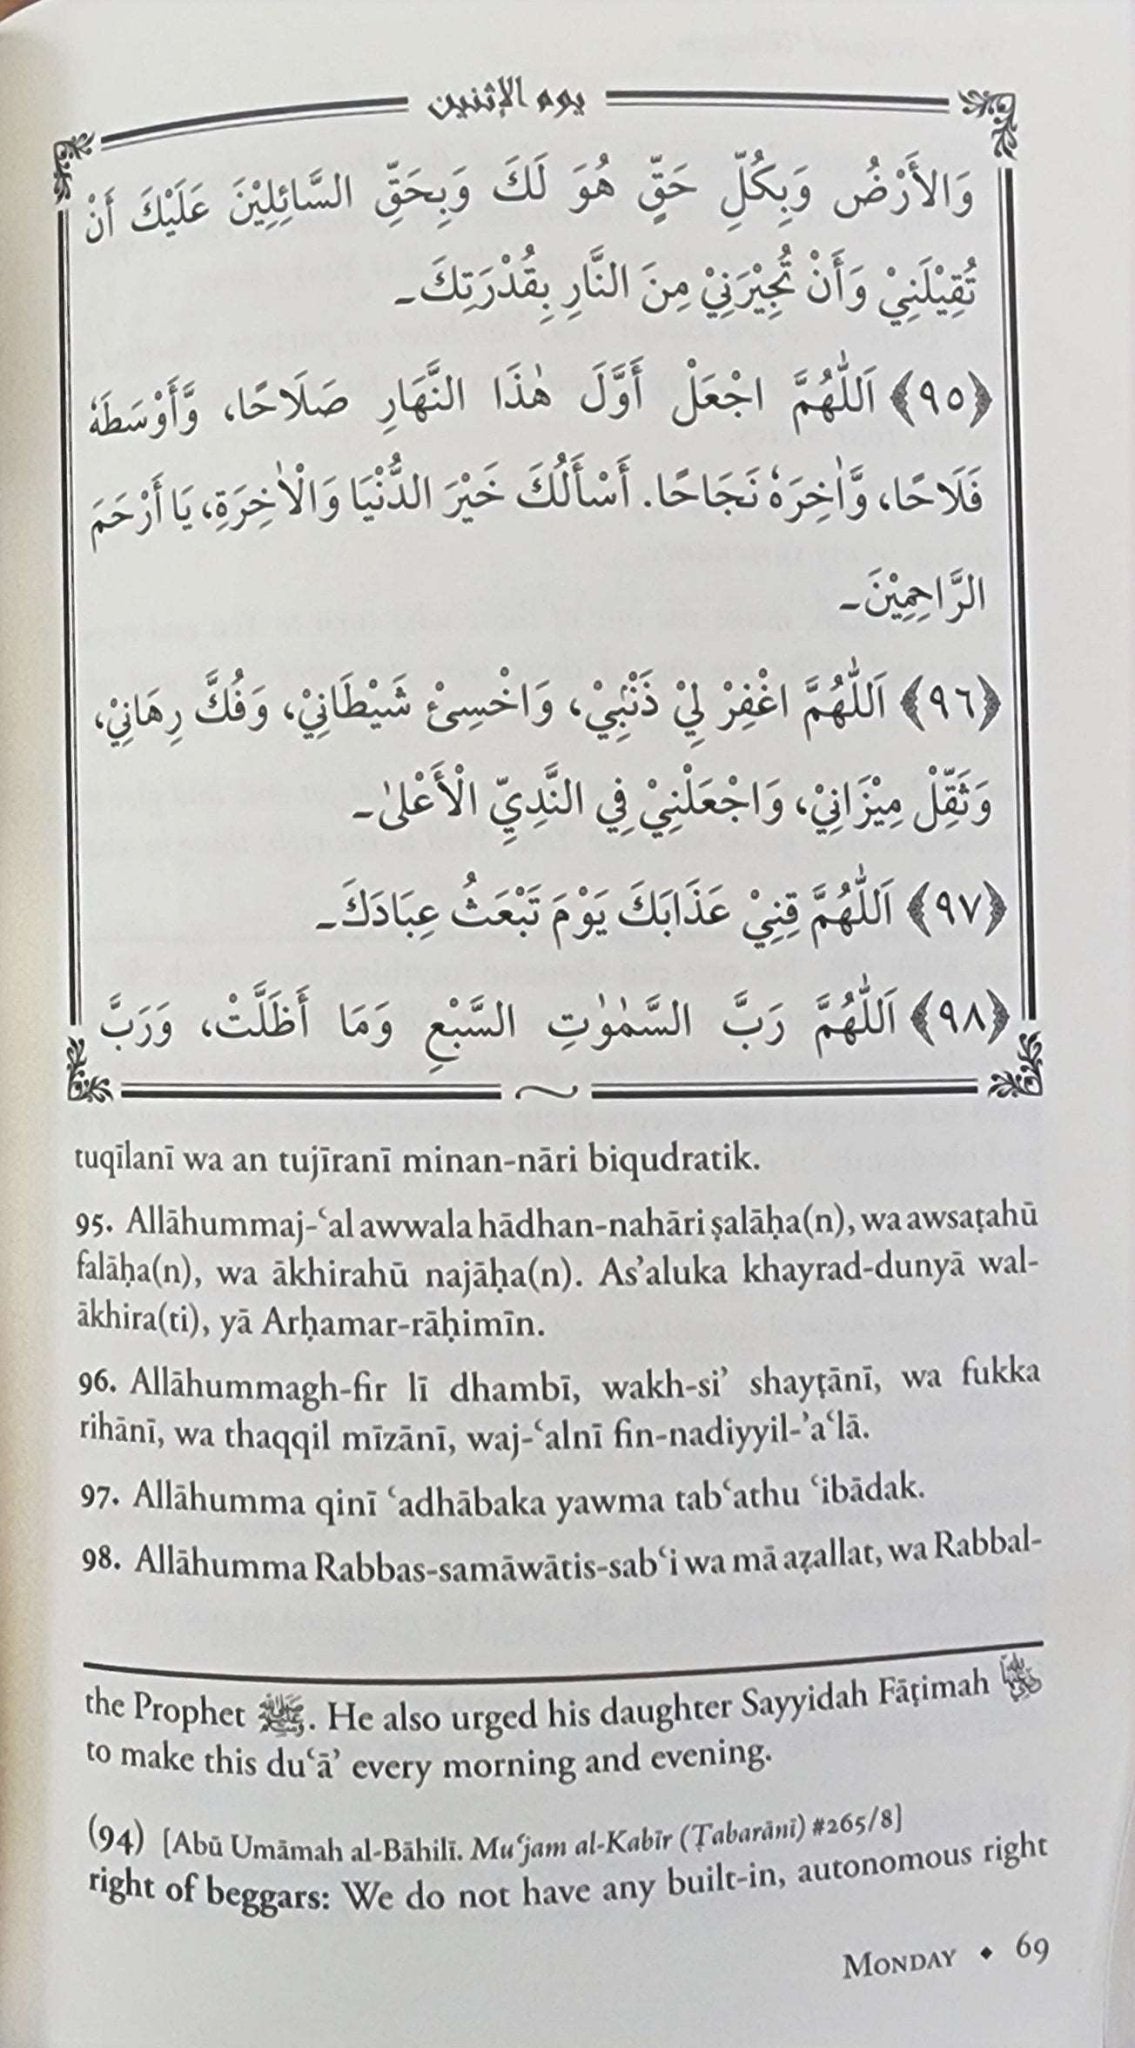 يوم الإثنين
وَالأَرْضُ وَبِكُلِّ حَقٍّ هُوَ لَكَ وَبِحَقِّ السَّائِلِيْنَ عَلَيْكَ أَنْ
تُقِيْلَنِيْ وَأَنْ تُجِيْرَنِيْ مِنَ النَّارِ بِقُدْرَتِكَ۔
﴿٩٥﴾ اَللّٰهُمَّ اجْعَلْ أَوَّلَ هٰذَا النَّهَارِ صَلَاحًا، وَّأَوْسَطَهٗ
فَلَاحًا، وَّاٰخِرَهٗ نَجَاحًا. أَسْأَلُكَ خَيْرَ الدُّنْيَا وَالْاٰخِرَةِ، يَا أَرْحَمَ
الرَّاحِمِيْنَ۔
﴿٩٦﴾ اَللّٰهُمَّ اغْفِرْ لِيْ ذَنْۢبِيْ، وَاخْسِئْ شَيْطَانِيْ، وَفُكَّ رِهَانِيْ،
وَثَقِّلْ مِيْزَانِيْ، وَاجْعَلْنِيْ فِي النَّدِيِّ الْأَعْلىٰ۔
﴿٩٧﴾ اَللّٰهُمَّ قِنِيْ عَذَابَكَ يَوْمَ تَبْعَثُ عِبَادَكَ۔
﴿٩٨﴾ اَللّٰهُمَّ رَبَّ السَّمٰوٰتِ السَّبْعِ وَمَا أَظَلَّتْ، وَرَبَّ
tuqīlanī wa an tujīranī minan-nāri biqudratik.
95. Allāhummaj-ʿal awwala hādhan-nahāri ṣalāḥa(n), wa awsaṭahū
falāḥa(n), wa ākhirahū najāḥa(n). As’aluka khayrad-dunyā wal-
ākhira(ti), yā Arḥamar-rāḥimīn.
96. Allāhummagh-fir lī dhambī, wakh-si’ shayṭānī, wa fukka
rihānī, wa thaqqil mīzānī, waj-ʿalnī fin-nadiyyil-’aʿlā.
97. Allāhumma qinī ʿadhābaka yawma tabʿathu ʿibādak.
98. Allāhumma Rabbas-samāwātis-sabʿi wa mā aẓallat, wa Rabbal-
the Prophet ﷺ. He also urged his daughter Sayyidah Fāṭimah
to make this duʿā’ every morning and evening.
(94) [Abū Umāmah al-Bāhilī. Muʿjam al-Kabīr (Ṭabarānī) #265/8]
right of beggars: We do not have any built-in, autonomous right
Monday ◆ 69